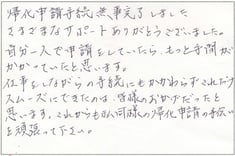 帰化申請手続無事完了しました
さまざまなサポートありがとうございました。
自分一人で申請をしていたら、もっと時間が
かかっていたと思います。
仕事をしながらの手続にもかかわらずこれだけ
スムーズにできたのは、皆様のおかげだったと
思います。これからも私同様の帰化申請の手伝い
を頑張って下さい。